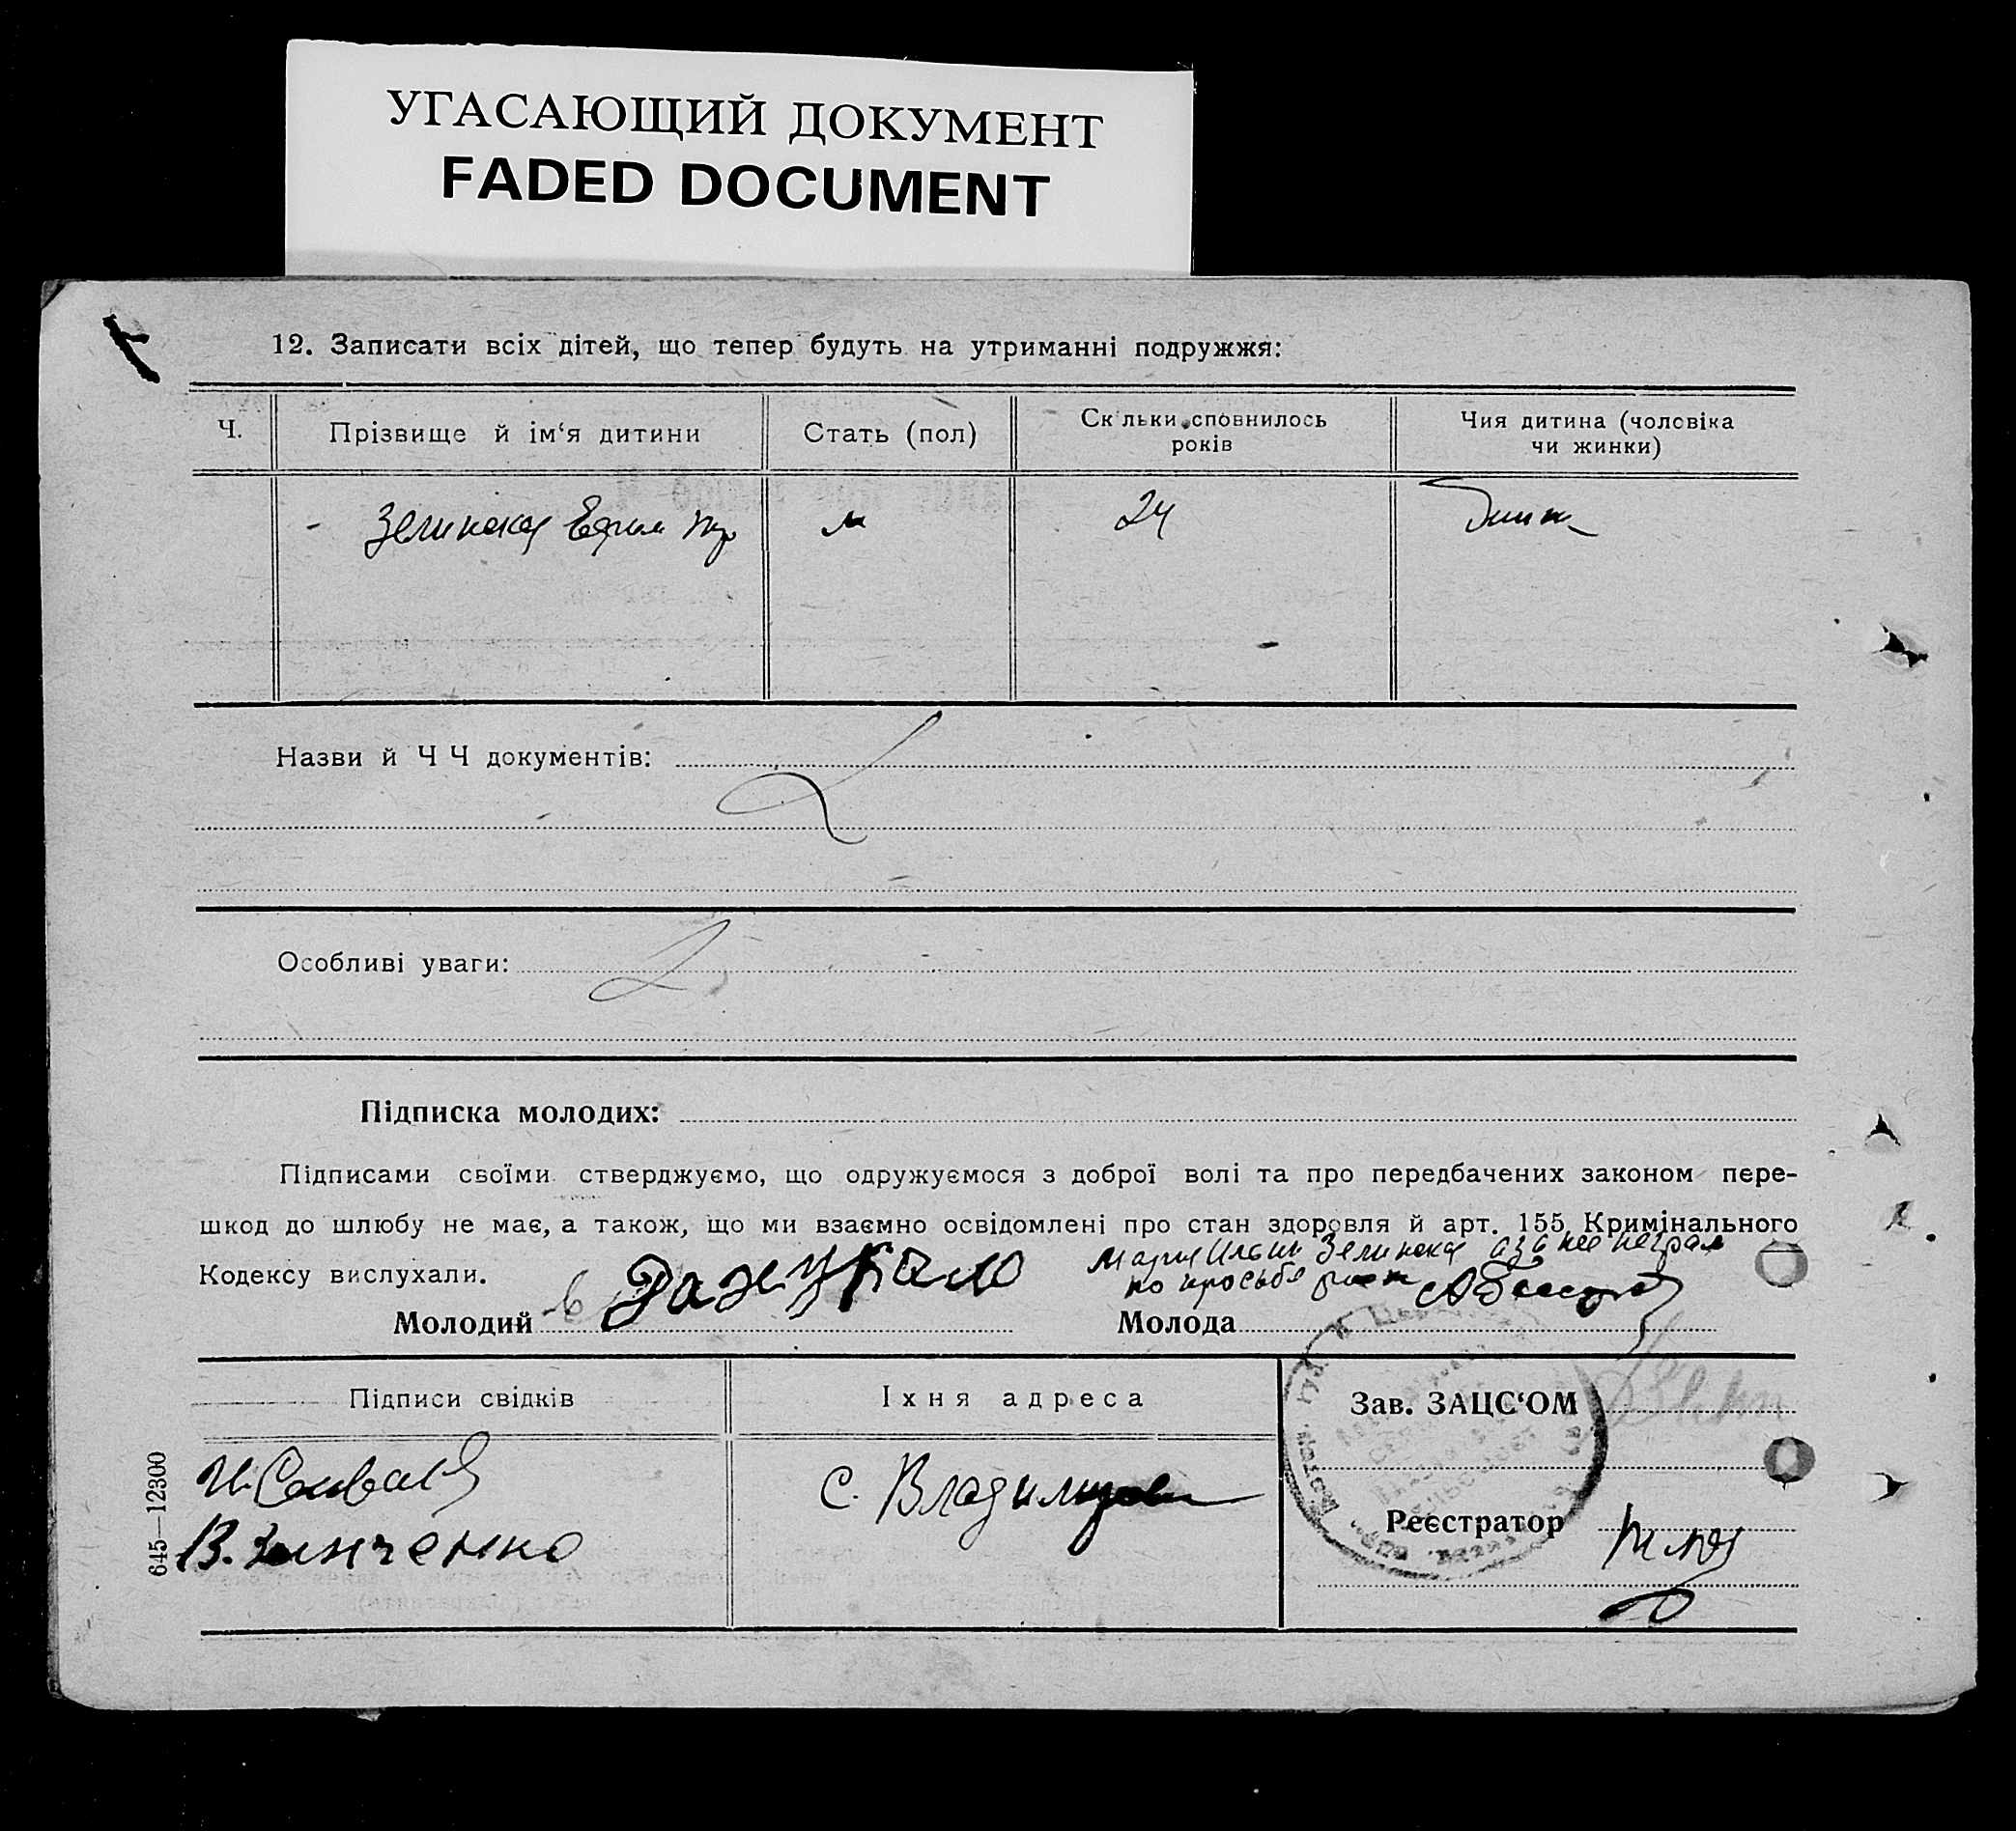 УГАСАЮЩИЙ ДОКУМЕНТ
FADED DOCUMENT
12. Записати всіх дітей, що тепер будуть на утриманні подружжя:
Ч.
Прізвище й ім‘я дитини
Стать (пол)
Скільки сповнилось
років
Чия дитина (чоловіка
чи жинки)
- Зелинская Ефим
м
24
Назви й Ч Ч документів:
Особливі уваги:
Підписка молодих:
Підписами своїми стверджуємо, що одружуємося з доброї волі та про передбачених законом пере-
шкод до шлюбу не має, а також, що ми взаємно освідомлені про стан здоровля й арт. 155 Кримінального
Кодексу вислухали.
Мария Зелинская а за нее неграм
по просьбе
Молодий
Молода
Підписи свідків
Іхня адреса
Зав. ЗАЦС‘ОМ
В. Зинченко
С. Владимировка
Реєстратор
645—12300